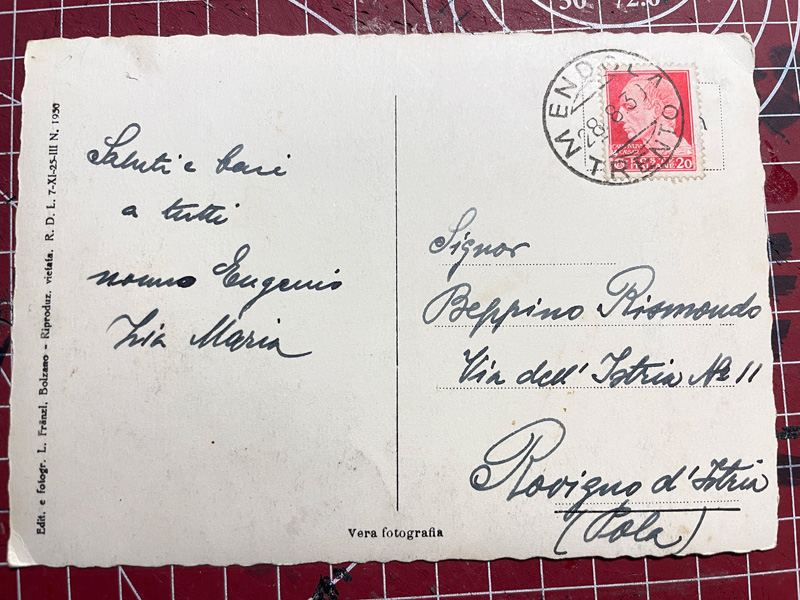 Edit. e fotogr. L. Fränzl, Bolzano - Riproduz. vietata. R. D. L. 7-XI-25-III N. 1950
Saluti e baci
a tutti
nonno Eugenio
Zia Maria
Vera fotografia
MENDOLA
28.8.3
TRENTO
20
Signor
Beppino Rismondo
Via dell' Istria No 11
Rovigno d'Istria
(Pola)